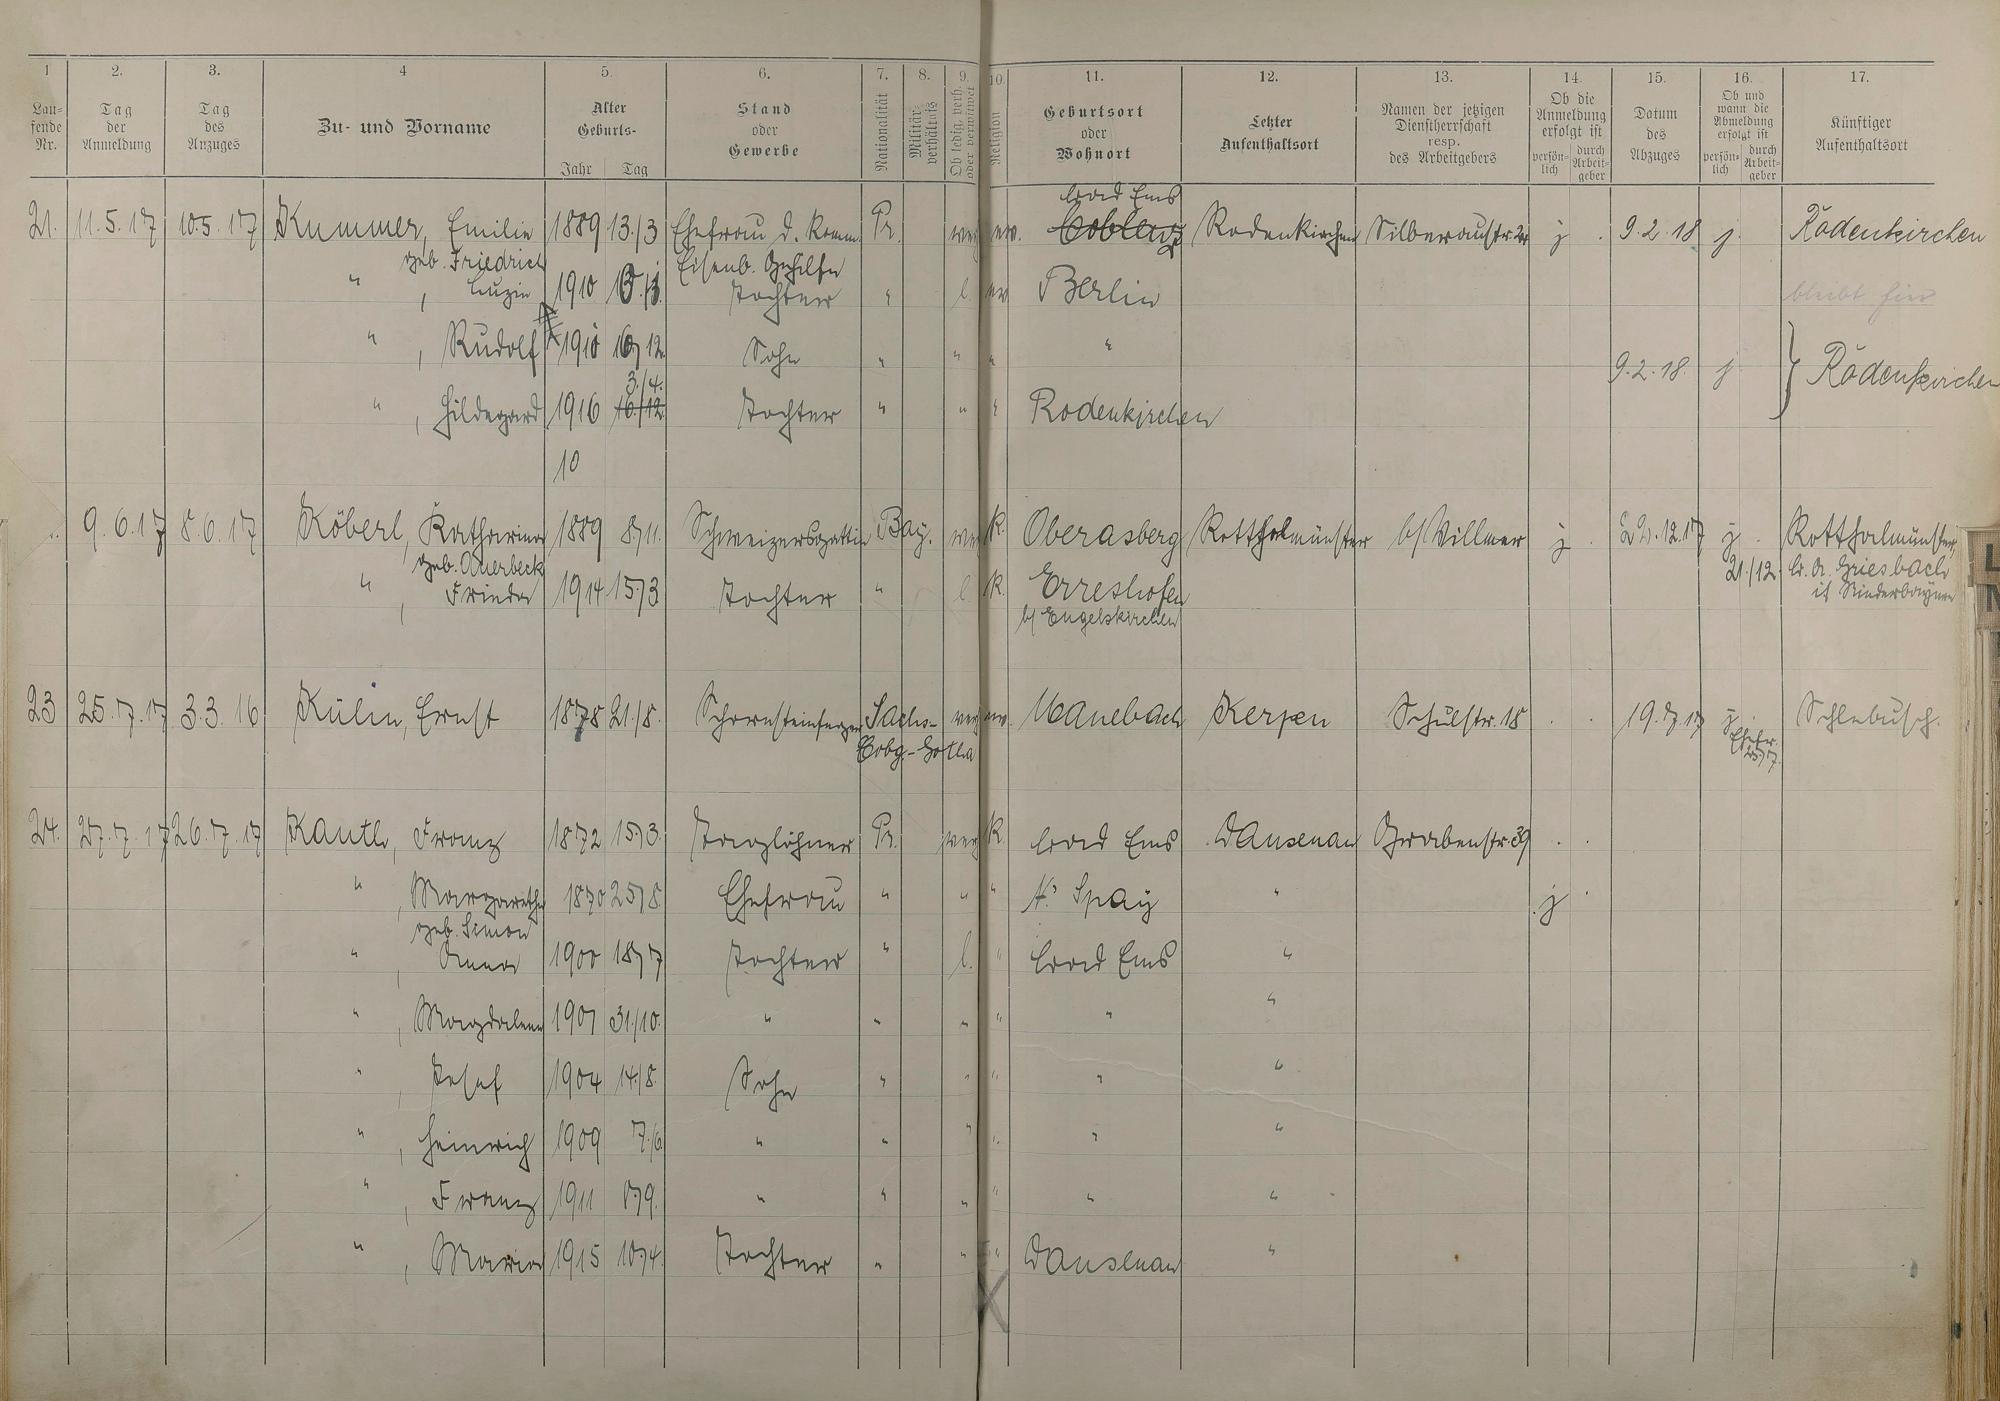 1 2. 3. 4 5. 6. 7. 8. 9. 10. 11. 12. 13. 14. 15. 16. 17.
Lau-
fende
Nr.
Tag
der
Anmeldung
Tag
des
Anzuges
Zu- und Vorname
Alter
Geburts-
Jahr Tag
Stand
oder
Gewerbe
Nationalität
Militär-
verhältnis
Ob ledig, verh.
oder verwitwet
Religion
Geburtsort
oder
Wohnort
Letzter
Aufenthaltsort
Namen der jetzigen
Dienstherrschaft
resp.
des Arbeitgebers
Ob die
Anmeldung
erfolgt ist
persön-
lich
durch
Arbeit-
geber
Datum
des
Abzuges
Ob und
wann die
Abmeldung
erfolgt ist
persön-
lich
durch
Arbeit-
geber
Künftiger
Aufenthaltsort
Bad Ems
21. 11.5.17 10.5.17 Kummer, Emilie 1889 13./3 Ehefrau d. Komm. Pr. ev. Coblenz Rodenkirchen Silberaustr. j . 9.2.18 j. Rodenkirchen
geb. Friedrich Eisenb. Gehilfe
" , Luzie 1910 Tochter " l. ev. Berlin bleibt hier
" , Rudolf 1910 12. Sohn " " " "
3./4. 9.2.18. j } Rodenkirchen
" , Hildegard 1916 16./12. Tochter " " " Rodenkirchen
10
9.6.17 8.6.17 Köberl, Katharina 1889 8./11. Schweizersgattin Bay. K. Oberasberg Rotthalmünster b/ Willmer j . 22.12.17 j . Rotthalmünster,
geb. Auerbeck 21./12. B. A. Griesbach
" , Frieda 1914 15./3 Tochter " l. K. Erreshofen i/ Niederbayern
b/ Engelskirchen
23 25.7.17 3.3.16 Külin, Ernst 1878 21./8. Schornsteinfeger Sachs- ev. Manebach Kerpen Schulstr. 18 . . 19.7.17 j. Schlebusch.
Cobg.-Gotha Ehefr.
25./7.
24. 27.7.17 26.7.17 Kauth, Franz 1872 15./3. Taglöhner Pr. K. Bad Ems Dausenau Grabenstr. 39 . .
" , Margaretha 1870 25./8. Ehefrau " " " N. Spay " j .
geb. Simon
" , Anna 1900 18./7 Tochter " l. " Bad Ems "
" , Magdalena 1901 31./10. " " " " " "
" , Josef 1904 14./8. Sohn " " " " "
" , Heinrich 1909 7./6. " " " " " "
" , Franz 1911 8./9. " " " " " "
" , Maria 1915 10./4. Tochter " " " Dausenau "